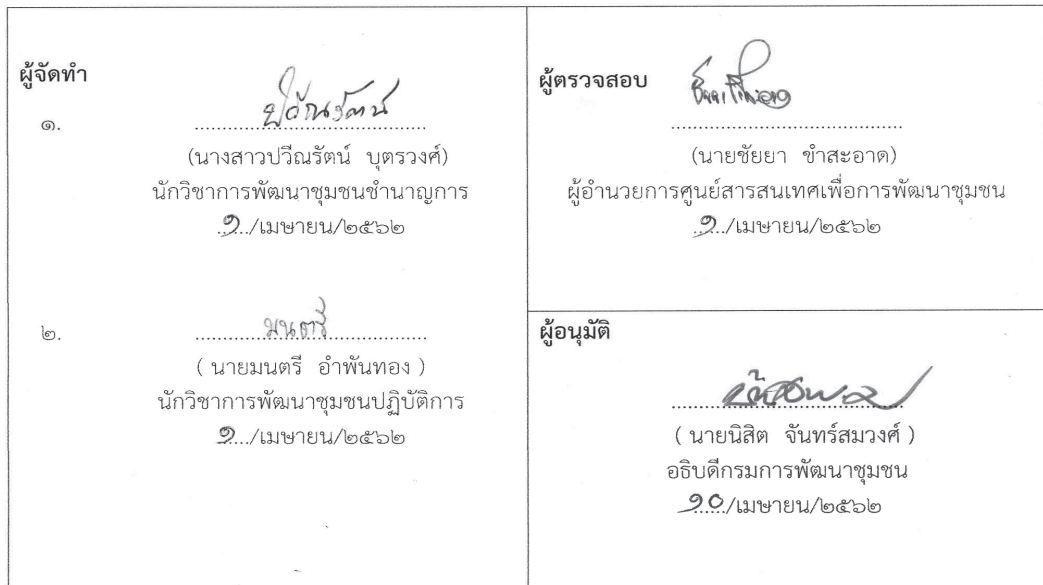 ผู้จัดทำ
๑.
ปวีณรัตน์
(นางสาวปวีณรัตน์ บุตรวงศ์)
นักวิชาการพัฒนาชุมชนชำนาญการ
๑/เมษายน/๒๕๖๒
๒.
มนตรี
( นายมนตรี อำพันทอง )
นักวิชาการพัฒนาชุมชนปฏิบัติการ
๑/เมษายน/๒๕๖๒
ผู้ตรวจสอบ
(นายชัยยา ขำสะอาด)
ผู้อำนวยการศูนย์สารสนเทศเพื่อการพัฒนาชุมชน
๑/เมษายน/๒๕๖๒
ผู้อนุมัติ
( นายนิสิต จันทร์สมวงศ์ )
อธิบดีกรมการพัฒนาชุมชน
๑๐/เมษายน/๒๕๖๒